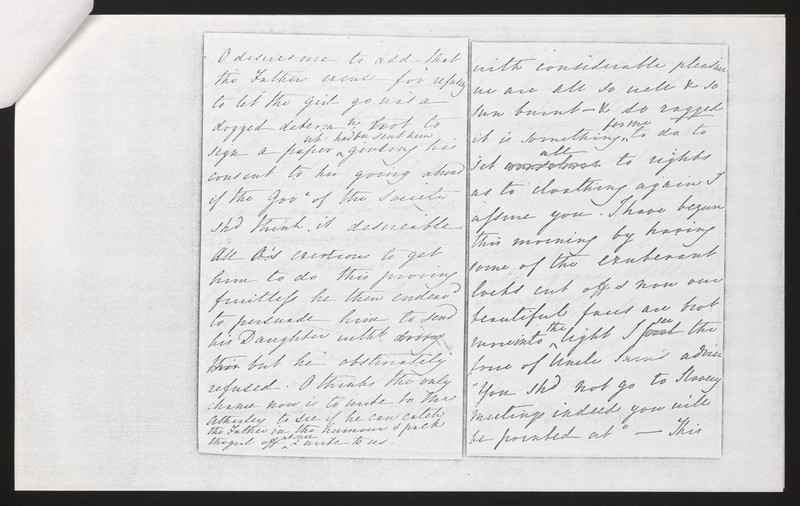 O desires me to add that
the Father excuse for refusg
to let the girl go was a
dogged determn not to
sign a paper wh. had been sent him giving his
consent to her going abroad
if the Govrs of the Society
shd think it desireable
All O's exertions to get
him to do this proving
fruitless he then endeavd
to persuade him to send
his Daughter witht
him but he obstinately
refused. O thinks the only
chance now is to write to Mr
Atherley to see if he can catch
the Father in the humour & pack
the girl off at once & write to us.
with considerable pleasure
we are all so well & so
sun burnt - & so ragged
it is something for me to do to
set all to rights
as to cloathing again I
assure you. I have begun
this morning by having
some of the exuberant
locks cut off & now our
beautiful faces are brot
more into the light I see the
force of Uncle advice
"You shd not go to Slavery
meetings indeed you will
be pointed at" - This